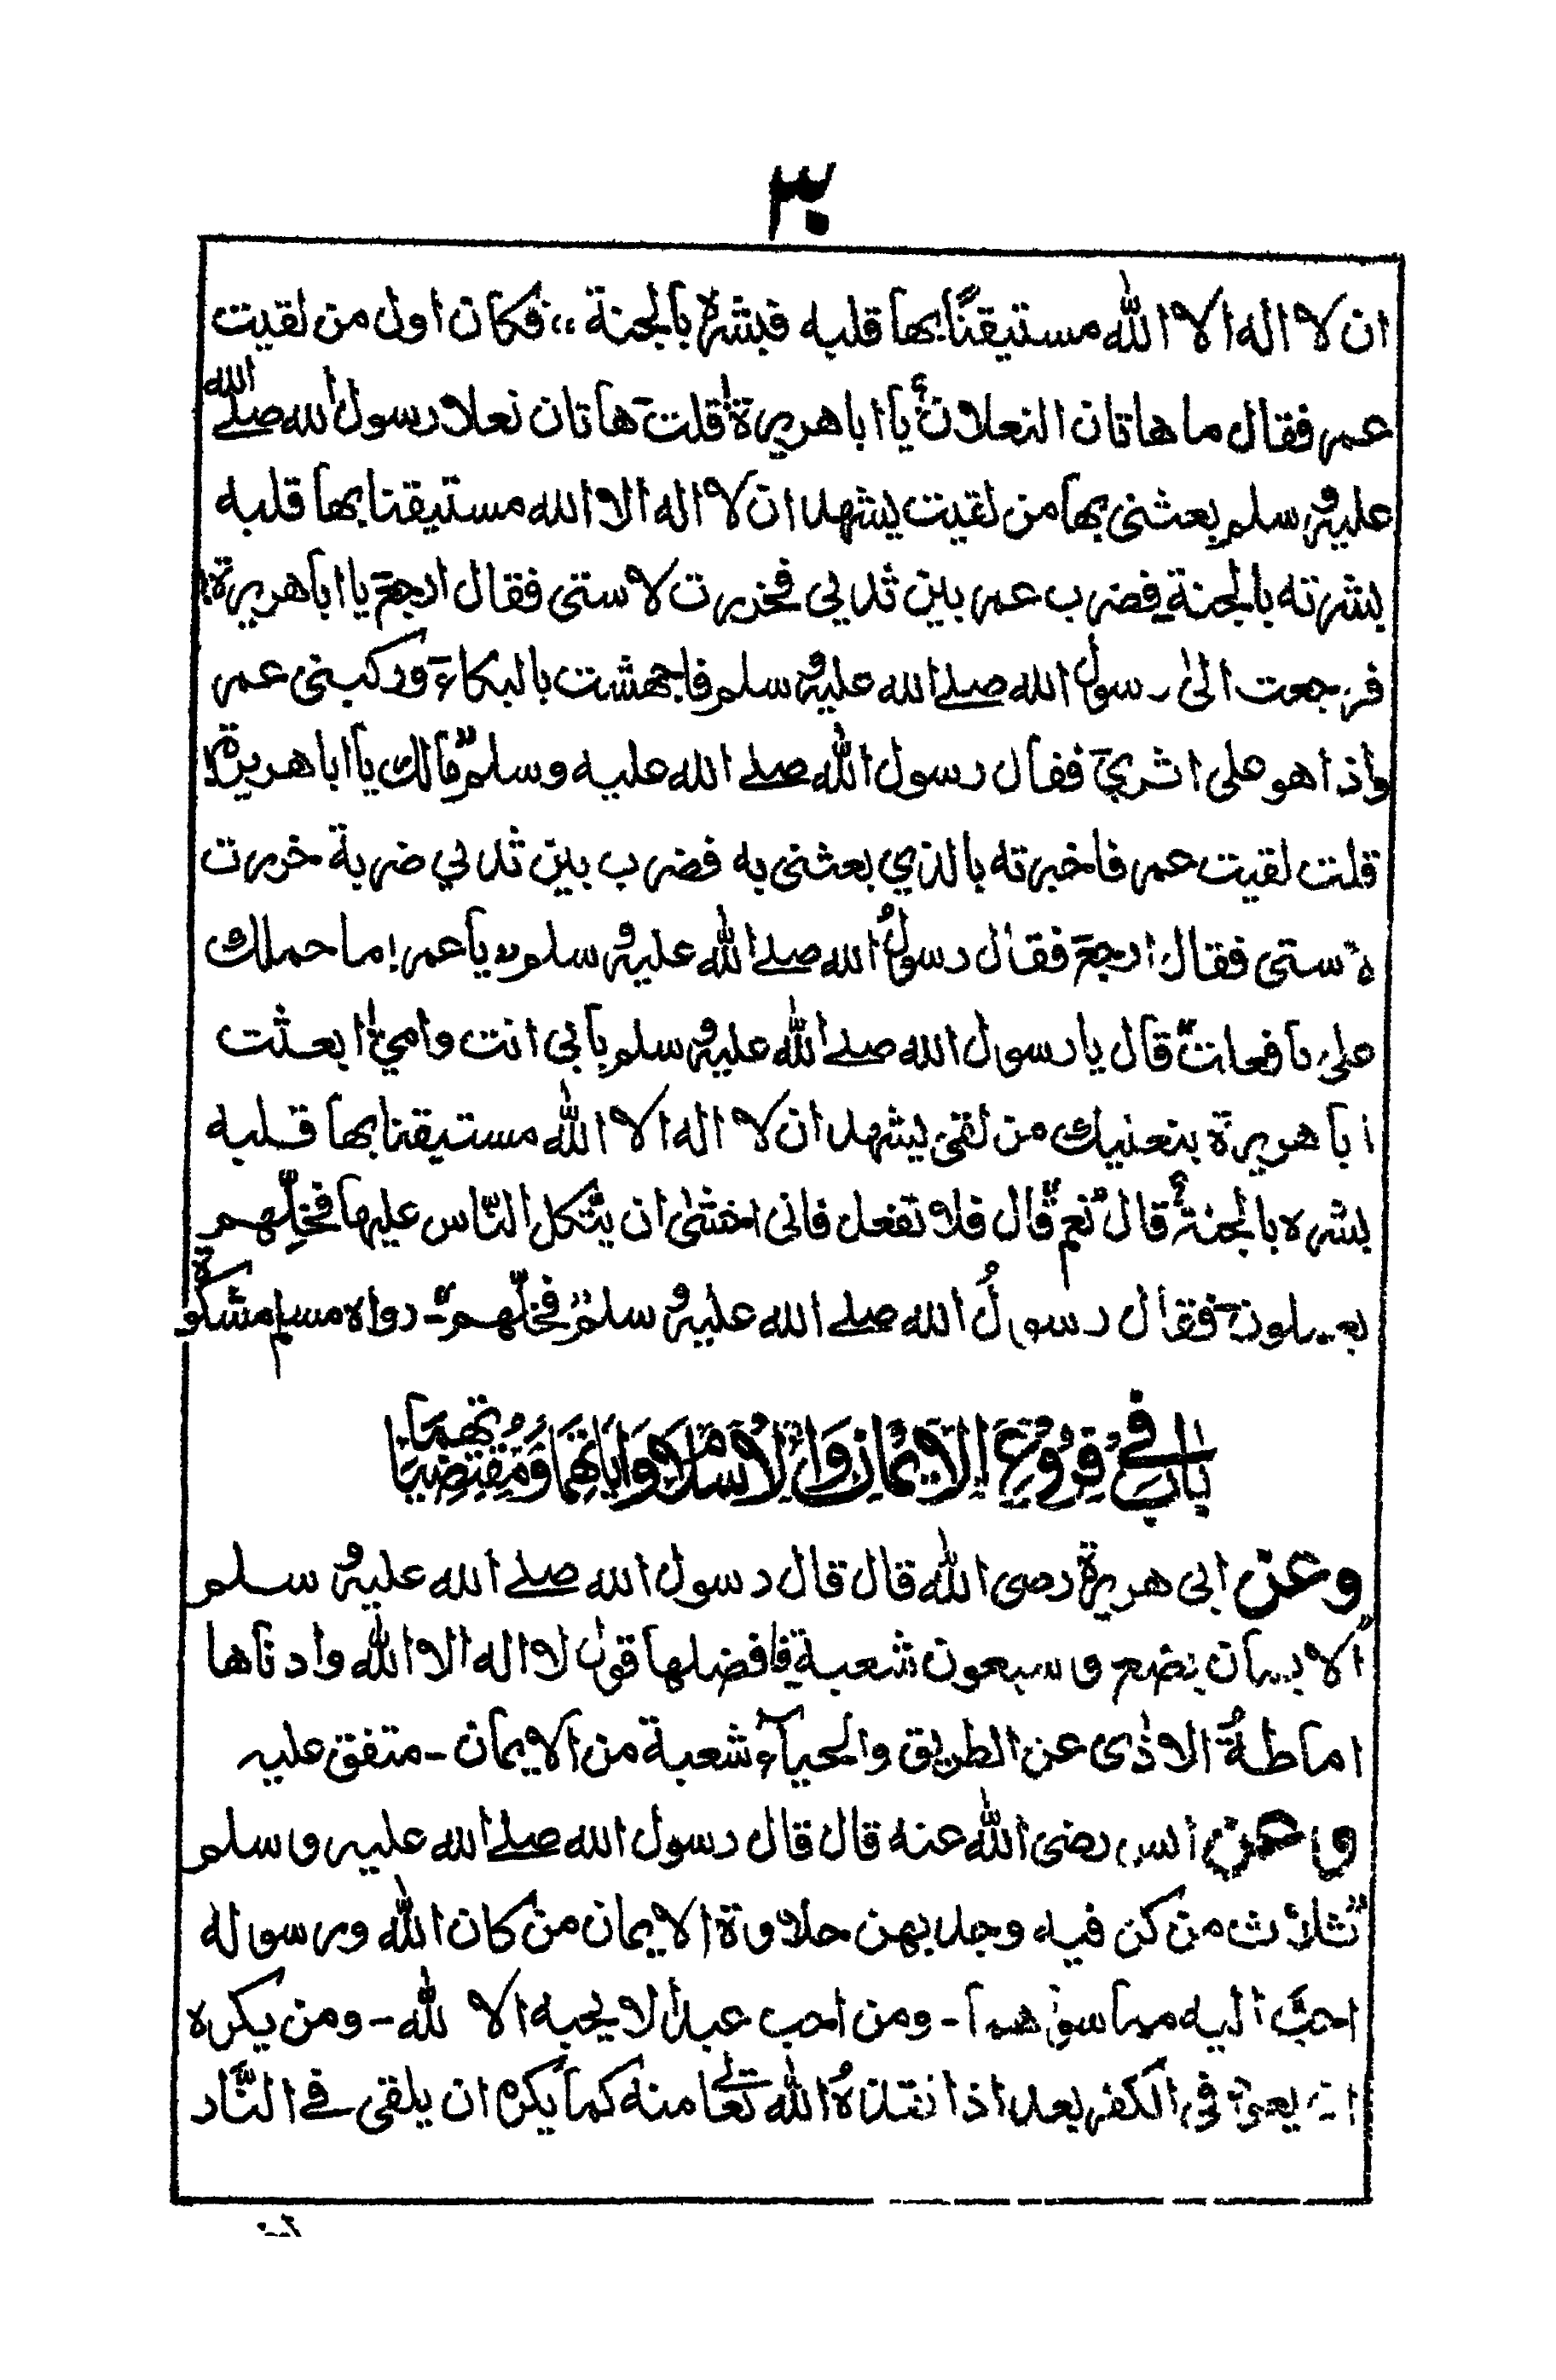 ٣٠
ان لا اله الا الله مستيقنًا بها قلبه فبشره بالجنة،، فكان اول من لقيت
عمر فقال ما هاتان النعلان يا ابا هريرة قلت هاتان نعلا رسول الله صلے الله
عليه و سلم بعثنى بها من لقيت يشهد ان لا اله الا الله مستيقنا بها قلبه
بشرته بالجنة فضرب عمر بين ثديي فخررت لاستى فقال ارجع يا ابا هريرة!
فرجعت الىٰ رسول الله صلے الله عليه و سلم فاجهشت بالبكاء وركبنى عمر
واذا هو على اثري فقال رسول الله صلے الله عليه وسلم مالك يا ابا هريرة!
قلت لقيت عمر فاخبرته بالذي بعثنى به فضرب بين ثديي ضربة خررت
لاستى فقال ارجع فقال رسولُ الله صلے الله عليه و سلم يا عمر! ما حملك
على ما فعلت قال يا رسول الله صلے الله عليه و سلم بابى انت وامي ابعثت
ابا هريرة بنعليك من لقى يشهد ان لا اله الا الله مستيقنا بها قلبه
بشره بالجنة قال نعم قال فلا تفعل فانى اخشىٰ ان يتّكل النّاس عليها فخلّهم
يعملون فقال رسولُ الله صلے الله عليه و سلم فخلّهم ـ رواه مسلم مشكوة
باب فِي فُرُوعِ الْاِيْمَانِ وَالْاِسْلَامِ وَاٰيَاتِهِمَا وَمُقْتَضِيَاتِهِمَا
وعن ابى هريرة رضى الله قال قال رسول الله صلے الله عليه و سلم
الايمان بضع و سبعون شعبة فافضلها قول لا اله الا الله وادناها
اماطةُ الاذٰى عن الطريق والحياء شعبة من الايمان ـ متفق عليه
و عن انس رضى الله عنه قال قال رسول الله صلے الله عليه و سلم
ثلاث من كن فيه وجد بهن حلاوة الايمان من كان الله ورسوله
احبَّ اليه مما سواهما ـ ومن احب عبدا لا يحبه الا لله ـ ومن يكره
ان يعود فى الكفر بعد اذ انقذهُ الله تعالے منه كما يكره ان يلقى فے النّار